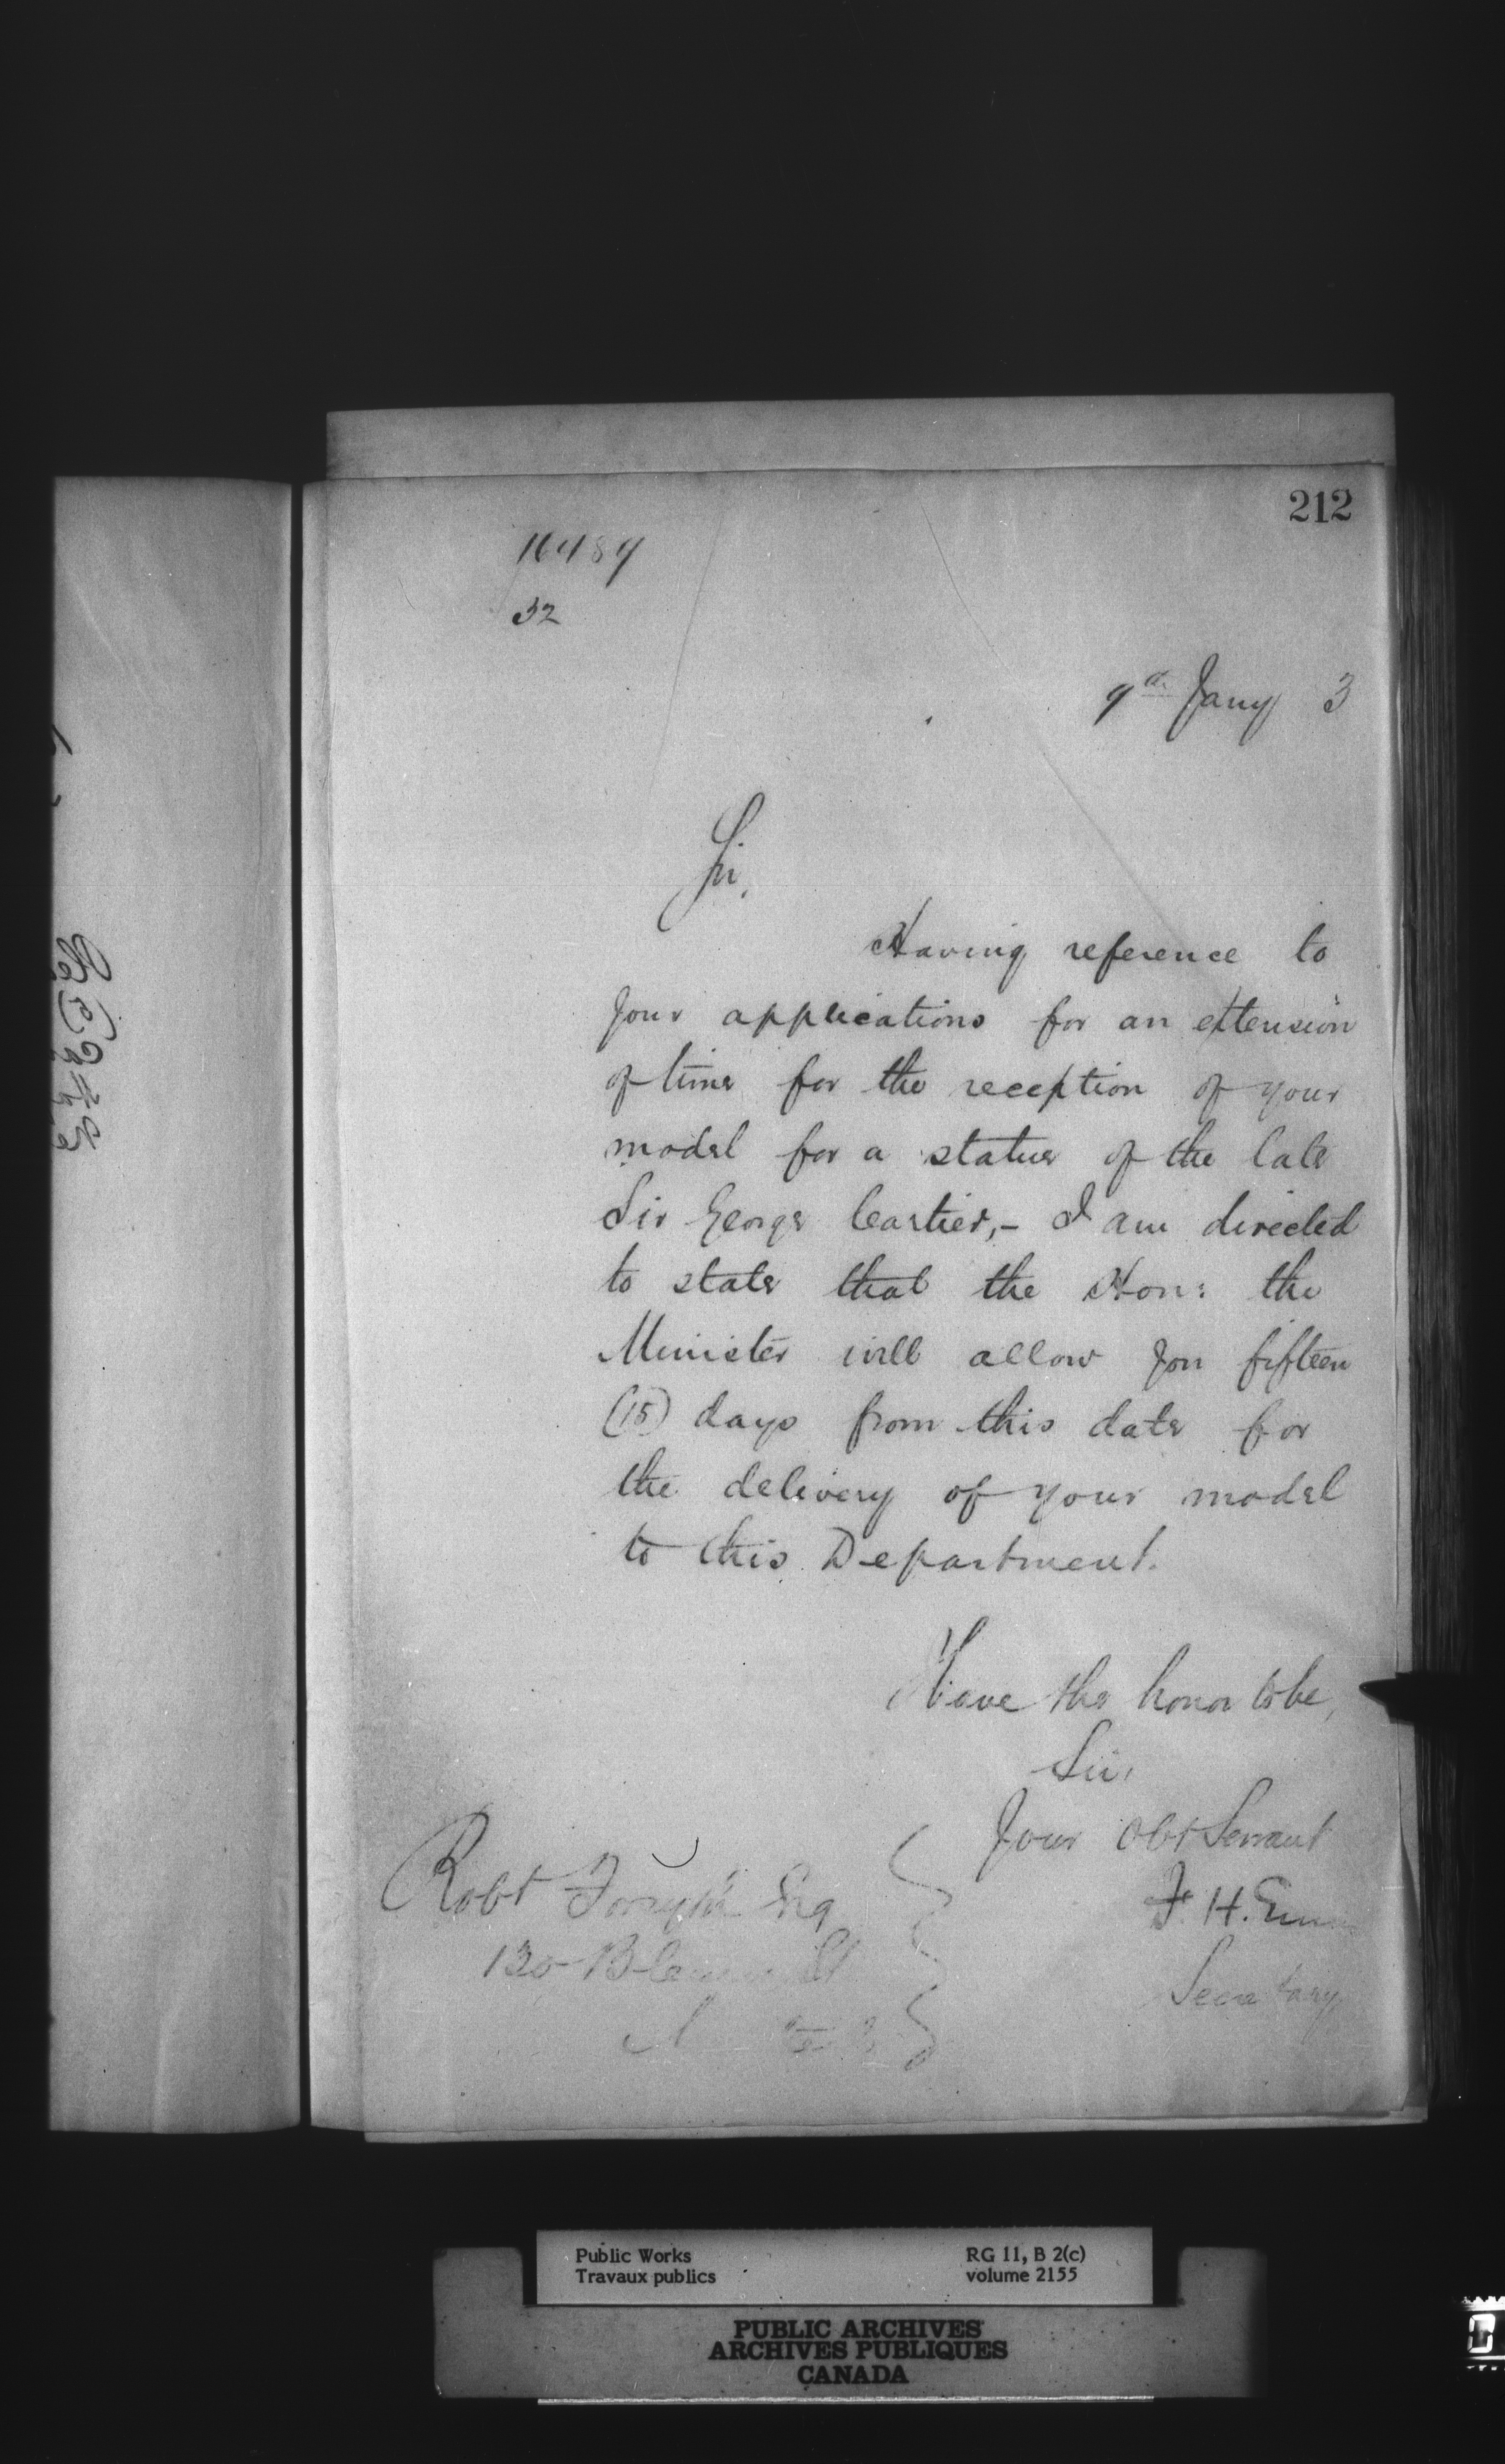 212
32
9th Jany 3
Sir,
Having reference to
your applications for an extension
of time for the reception of your
model for a statue of the late
Sir George Cartier,- I am directed
to state that the Hon: the
Minister will allow you fifteen
(15) days from this date for
the delivery of your model
to this Department.
Have the honor to be,
Sir,
Your Obt Servant
F. H. Ennis
Secretary
Robt Forsyth Esq
130 St
Public Works
Travaux publics
RG 11, B 2(c)
volume 2155
PUBLIC ARCHIVES
ARCHIVES PUBLIQUES
CANADA